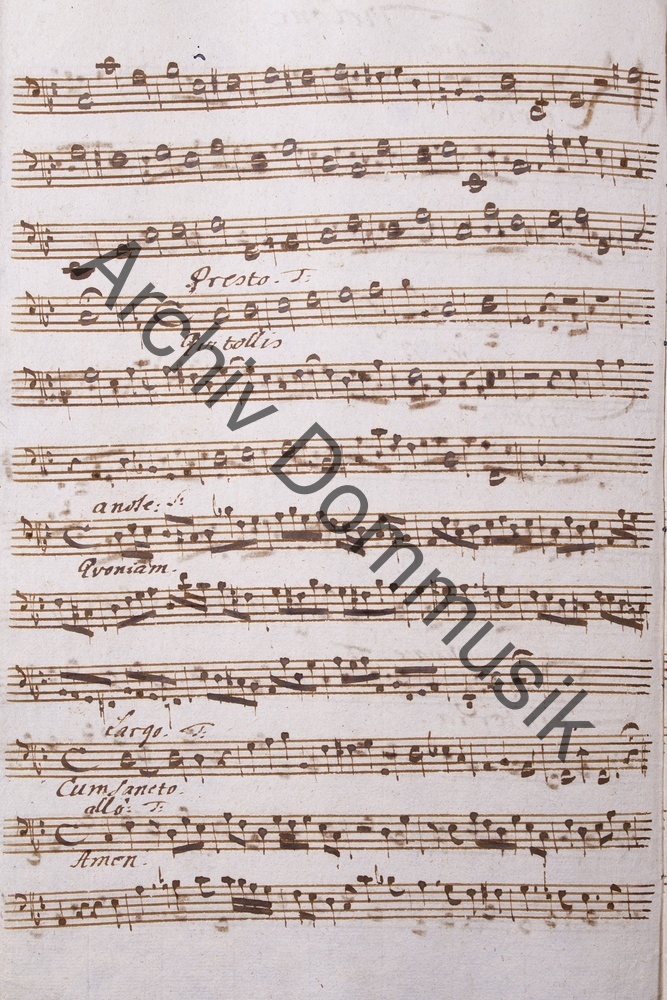 Presto. T:
Qui tollis
andte: T:
Quoniam.
Largo. T:
Cum Sancto.
allo: T:
Amen.
Archiv Dommusik